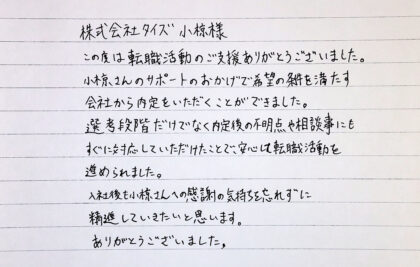 株式会社タイズ 小椋様
この度は転職活動のご支援ありがとうございました。
小椋さんのサポートのおかげで希望の条件を満たす
会社から内定をいただくことができました。
選考段階だけでなく内定後の不明点や相談事にも
すぐに対応していただけたことで、安心して転職活動を
進められました。
入社後も小椋さんへの感謝の気持ちを忘れずに
精進していきたいと思います。
ありがとうございました。